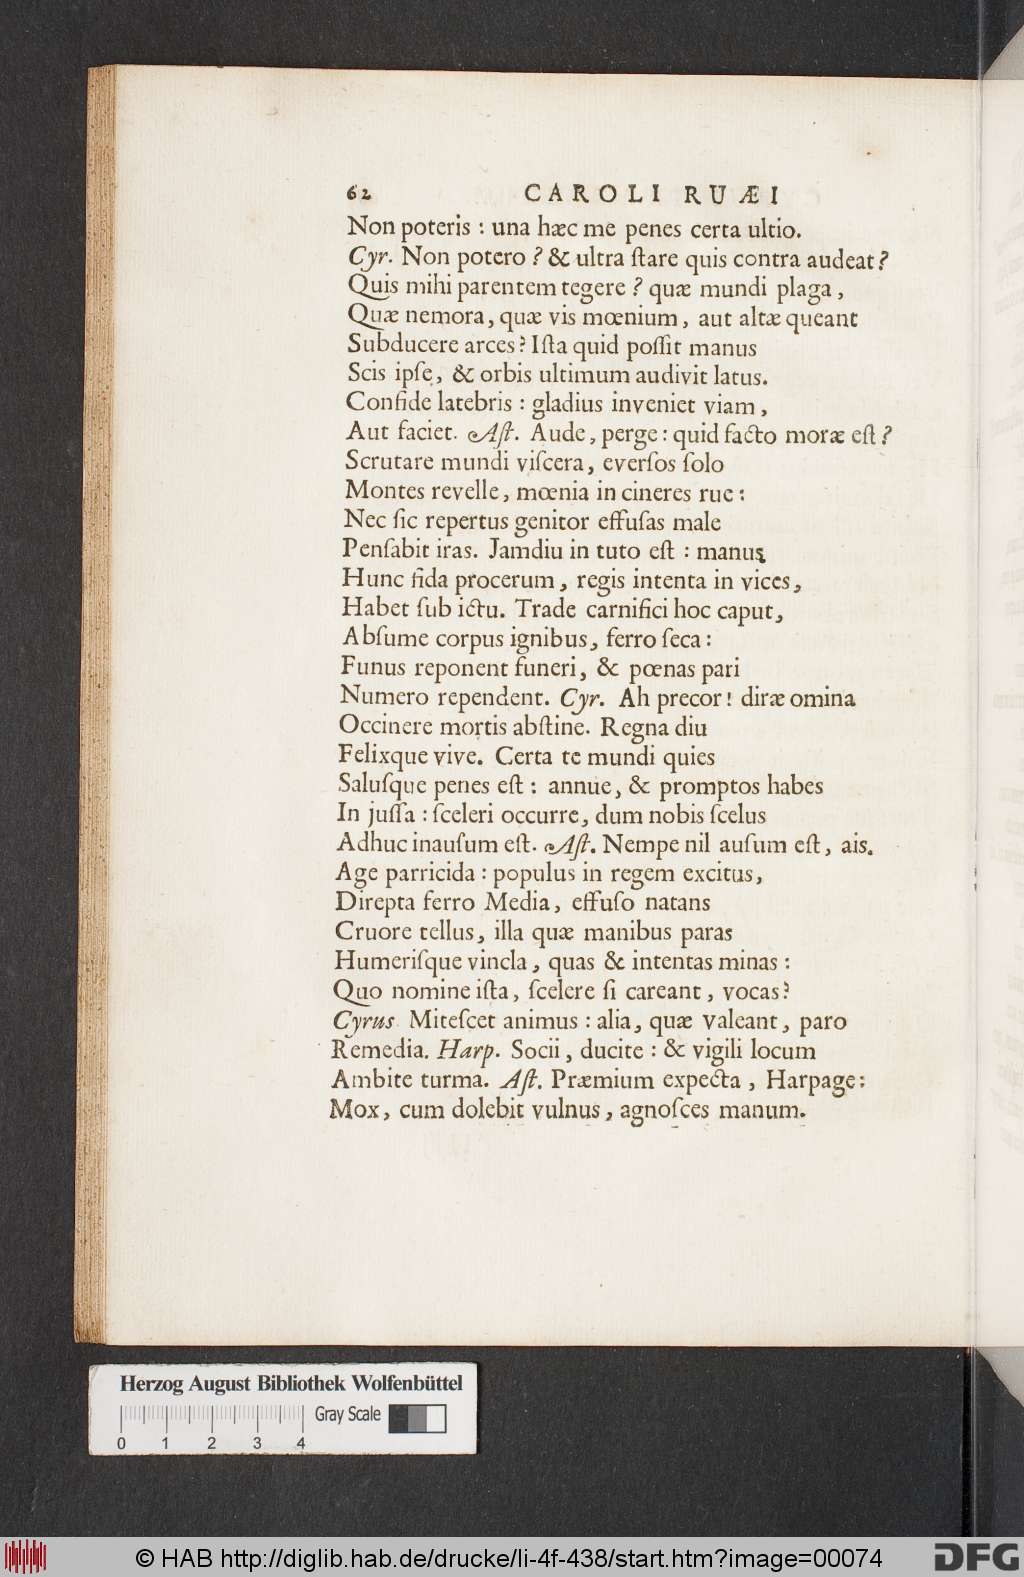 62 CAROLI RUÆI
Non poteris : una hæc me penes certa ultio.
Cyr. Non potero ? & ultra ſtare quis contra audeat?
Quis mihi parentem tegere ? quæ mundi plaga ,
Quæ nemora, quæ vis mœnium , aut altæ queant
Subducere arces? Iſta quid poſſit manus
Scis ipſe, & orbis ultimum audivit latus.
Confide latebris : gladius inveniet viam ,
Aut faciet. Aſt. Aude, perge : quid facto moræ eſt ?
Scrutare mundi viſcera, everſos ſolo
Montes revelle, mœnia in cineres rue :
Nec ſic repertus genitor effuſas male
Penſabit iras. Jamdiu in tuto eſt : manus
Hunc fida procerum , regis intenta in vices,
Habet ſub ictu. Trade carnifici hoc caput,
Abſume corpus ignibus, ferro ſeca :
Funus reponent funeri, & pœnas pari
Numero rependent. Cyr. Ah precor! diræ omina
Occinere mortis abſtine. Regna diu
Felixque vive. Certa te mundi quies
Saluſque penes eſt : annue, & promptos habes
In juſſa : ſceleri occurre, dum nobis ſcelus
Adhuc inauſum eſt. Aſt. Nempe nil auſum eſt, ais.
Age parricida : populus in regem excitus,
Direpta ferro Media, effuſo natans
Cruore tellus, illa quæ manibus paras
Humeriſque vincla, quas & intentas minas :
Quo nomine iſta, ſcelere ſi careant , vocas?
Cyrus Miteſcet animus : alia, quæ valeant, paro
Remedia. Harp. Socii, ducite : & vigili locum
Ambite turma. Aſt. Præmium expecta , Harpage:
Mox, cum dolebit vulnus, agnoſces manum.
Herzog August Bibliothek Wolfenbüttel
Gray Scale
0 1 2 3 4
© HAB http://diglib.hab.de/drucke/li-4f-438/start.htm?image=00074
DFG